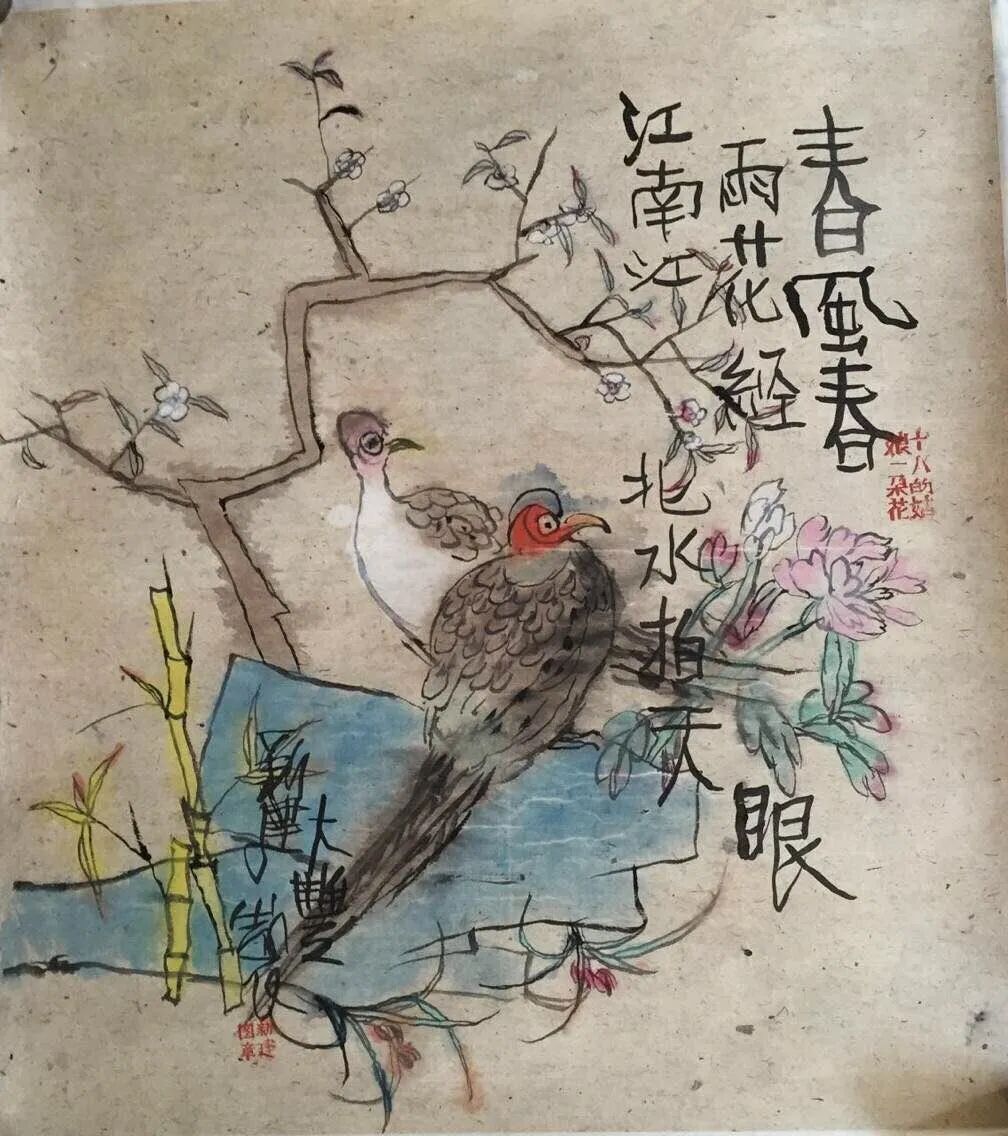 春風春
雨花經眼
江南江北水拍天
十八的姑
娘一朵花
大豐
新建